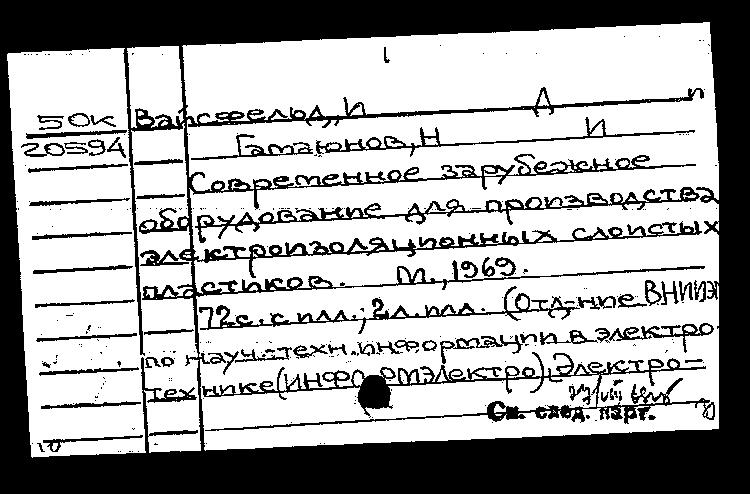 50К Вайсфельд, И Д п
20594 Гамаюнов, Н И
Современное зарубежное
оборудование для производства
электроизоляционных слоистых
пластиков. М., 1969.
72с. с илл.; 2л. илл. (Отд-ние ВНИИЭ
по науч.-техн. информации в электро-
технике (ИНФОРМЭЛЕКТРО). Электро-
См. след. карт.